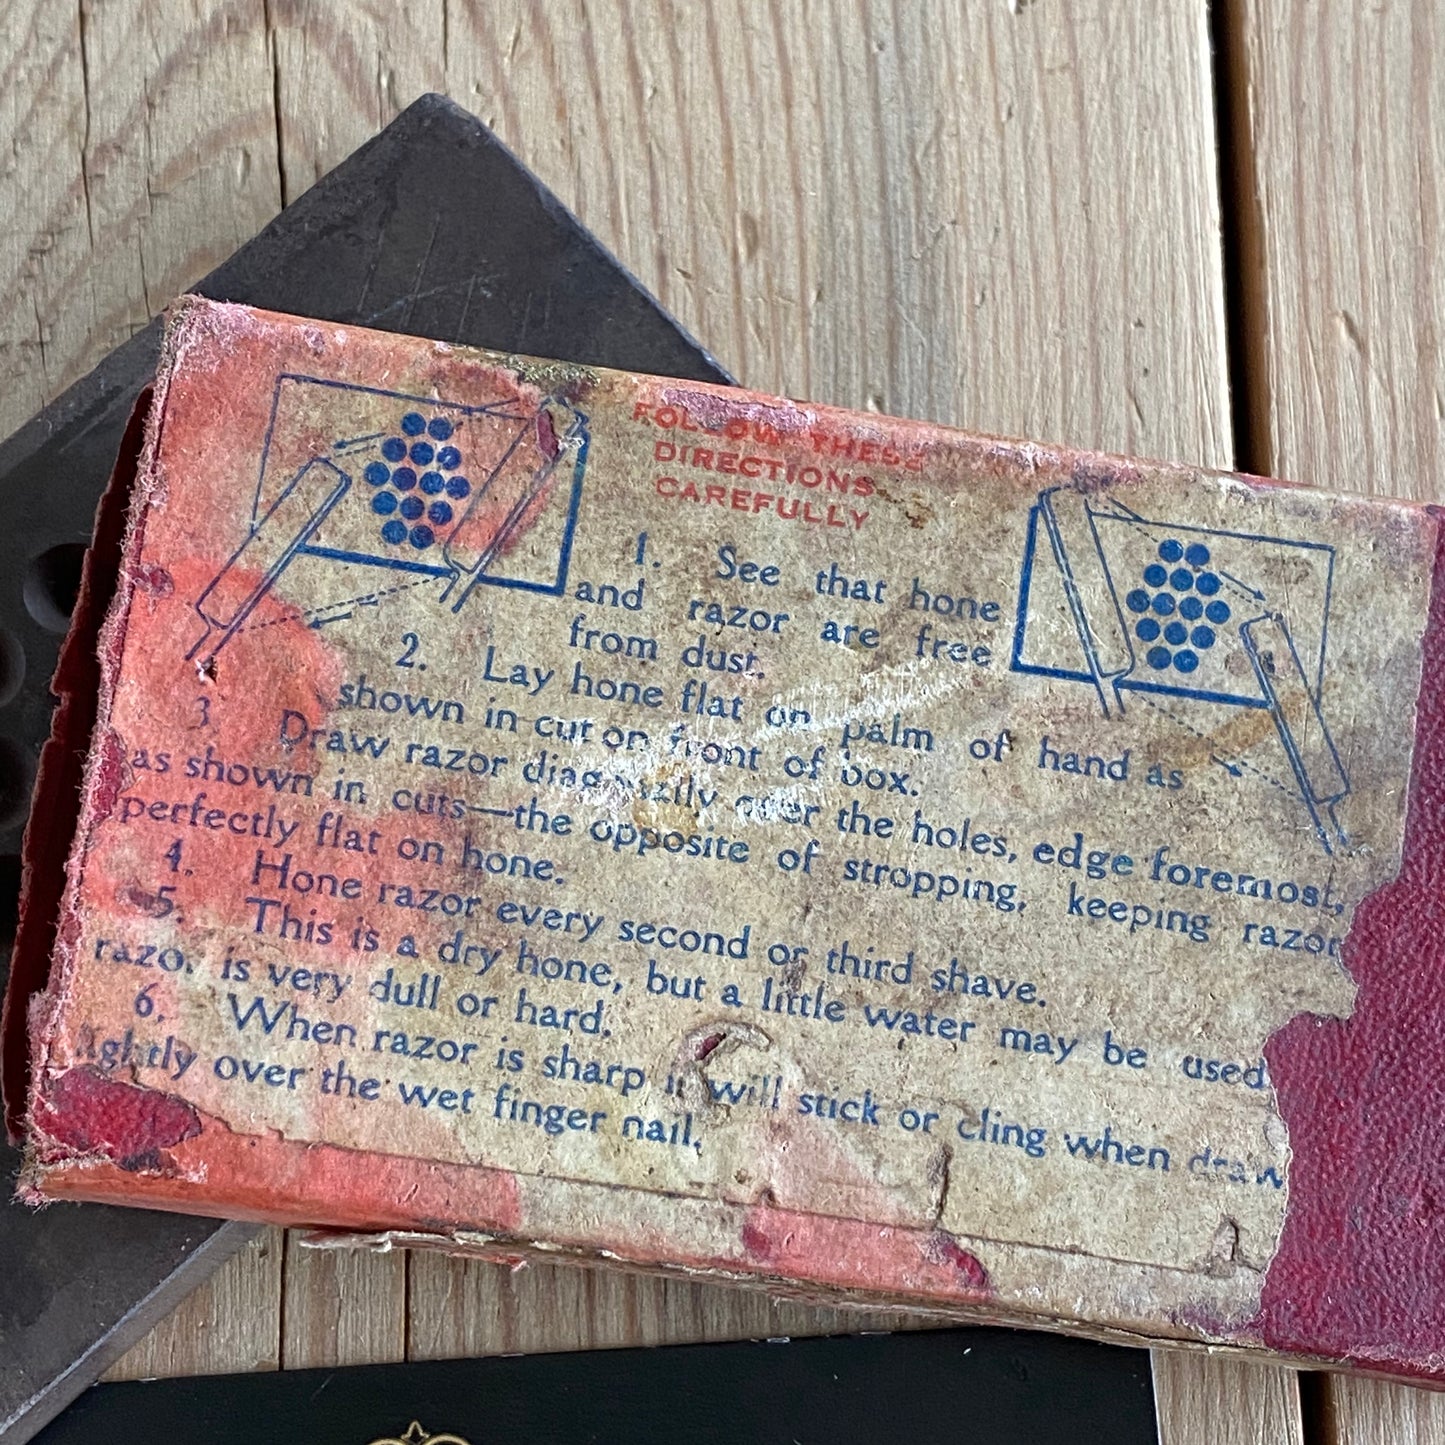 FOLLOW THESE
DIRECTIONS
CAREFULLY
1. See that hone
and razor are free
from dust.
2. Lay hone flat on palm of hand as
shown in cut on front of box.
3 Draw razor diagonally over the holes, edge foremost,
as shown in cuts—the opposite of stropping, keeping razor
perfectly flat on hone.
4. Hone razor every second or third shave.
5. This is a dry hone, but a little water may be used
razor is very dull or hard.
6. When razor is sharp it will stick or cling when draw
lightly over the wet finger nail.